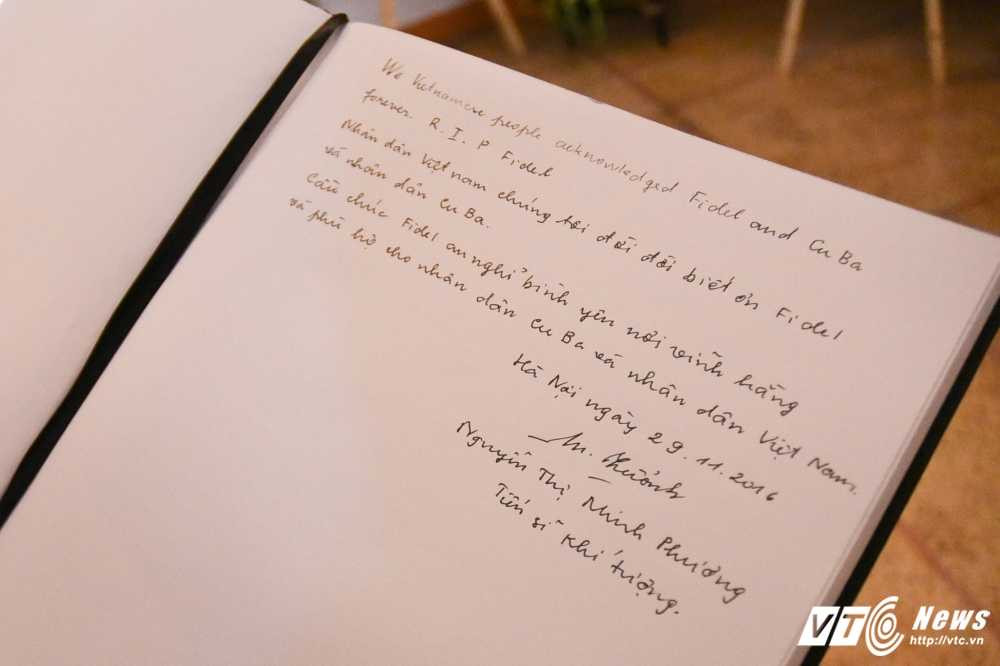 We Vietnamese people acknowledged Fidel and Cu Ba
forever. R.I.P Fidel
Nhân dân Việt nam chúng tôi đời đời biết ơn Fidel
và nhân dân Cu Ba.
Cầu chúc Fidel an nghỉ bình yên nơi vĩnh hằng
và phù hộ cho nhân dân Cu Ba và nhân dân Việt Nam.
Hà Nội ngày 29.11.2016
Nguyễn Thị Minh Phương
Tiến sĩ Khí tượng.
VTC News
http://vtc.vn